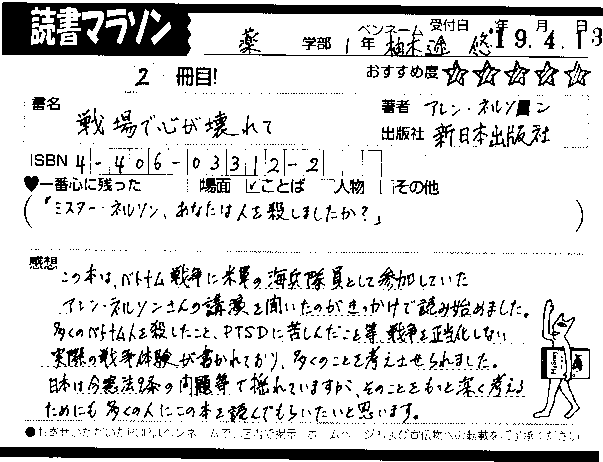 読書マラソン
薬 学部 1年 ペンネーム 柚木遥 悠 受付日 '19.4.13 年 月 日
2 冊目! おすすめ度 ☆☆☆☆☆
書名 戦場で心が壊れて
著者 アレン・ネルソン
出版社 新日本出版社
ISBN 4-406-03312-2
♥一番心に残った 場面 ✓ことば 人物 その他
(「ミスター・ネルソン、あなたは人を殺しましたか?」)
感想
この本は、ベトナム戦争に米軍の海兵隊員として参加していた
アレン・ネルソンさんの講演を聞いたのがきっかけで読み始めました。
多くのベトナム人を殺したこと、PTSDに苦しんだこと等、戦争を正当化しない
実際の戦争体験が書かれており、多くのことを考えさせられました。
日本は今憲法9条の問題等で揺れていますが、そのことをもっと深く考える
ためにも多くの人にこの本を読んでもらいたいと思います。
●お寄せいただいたPOPはペンネームで、店内で掲示・ホームページおよび書伝物への転載をご了承ください